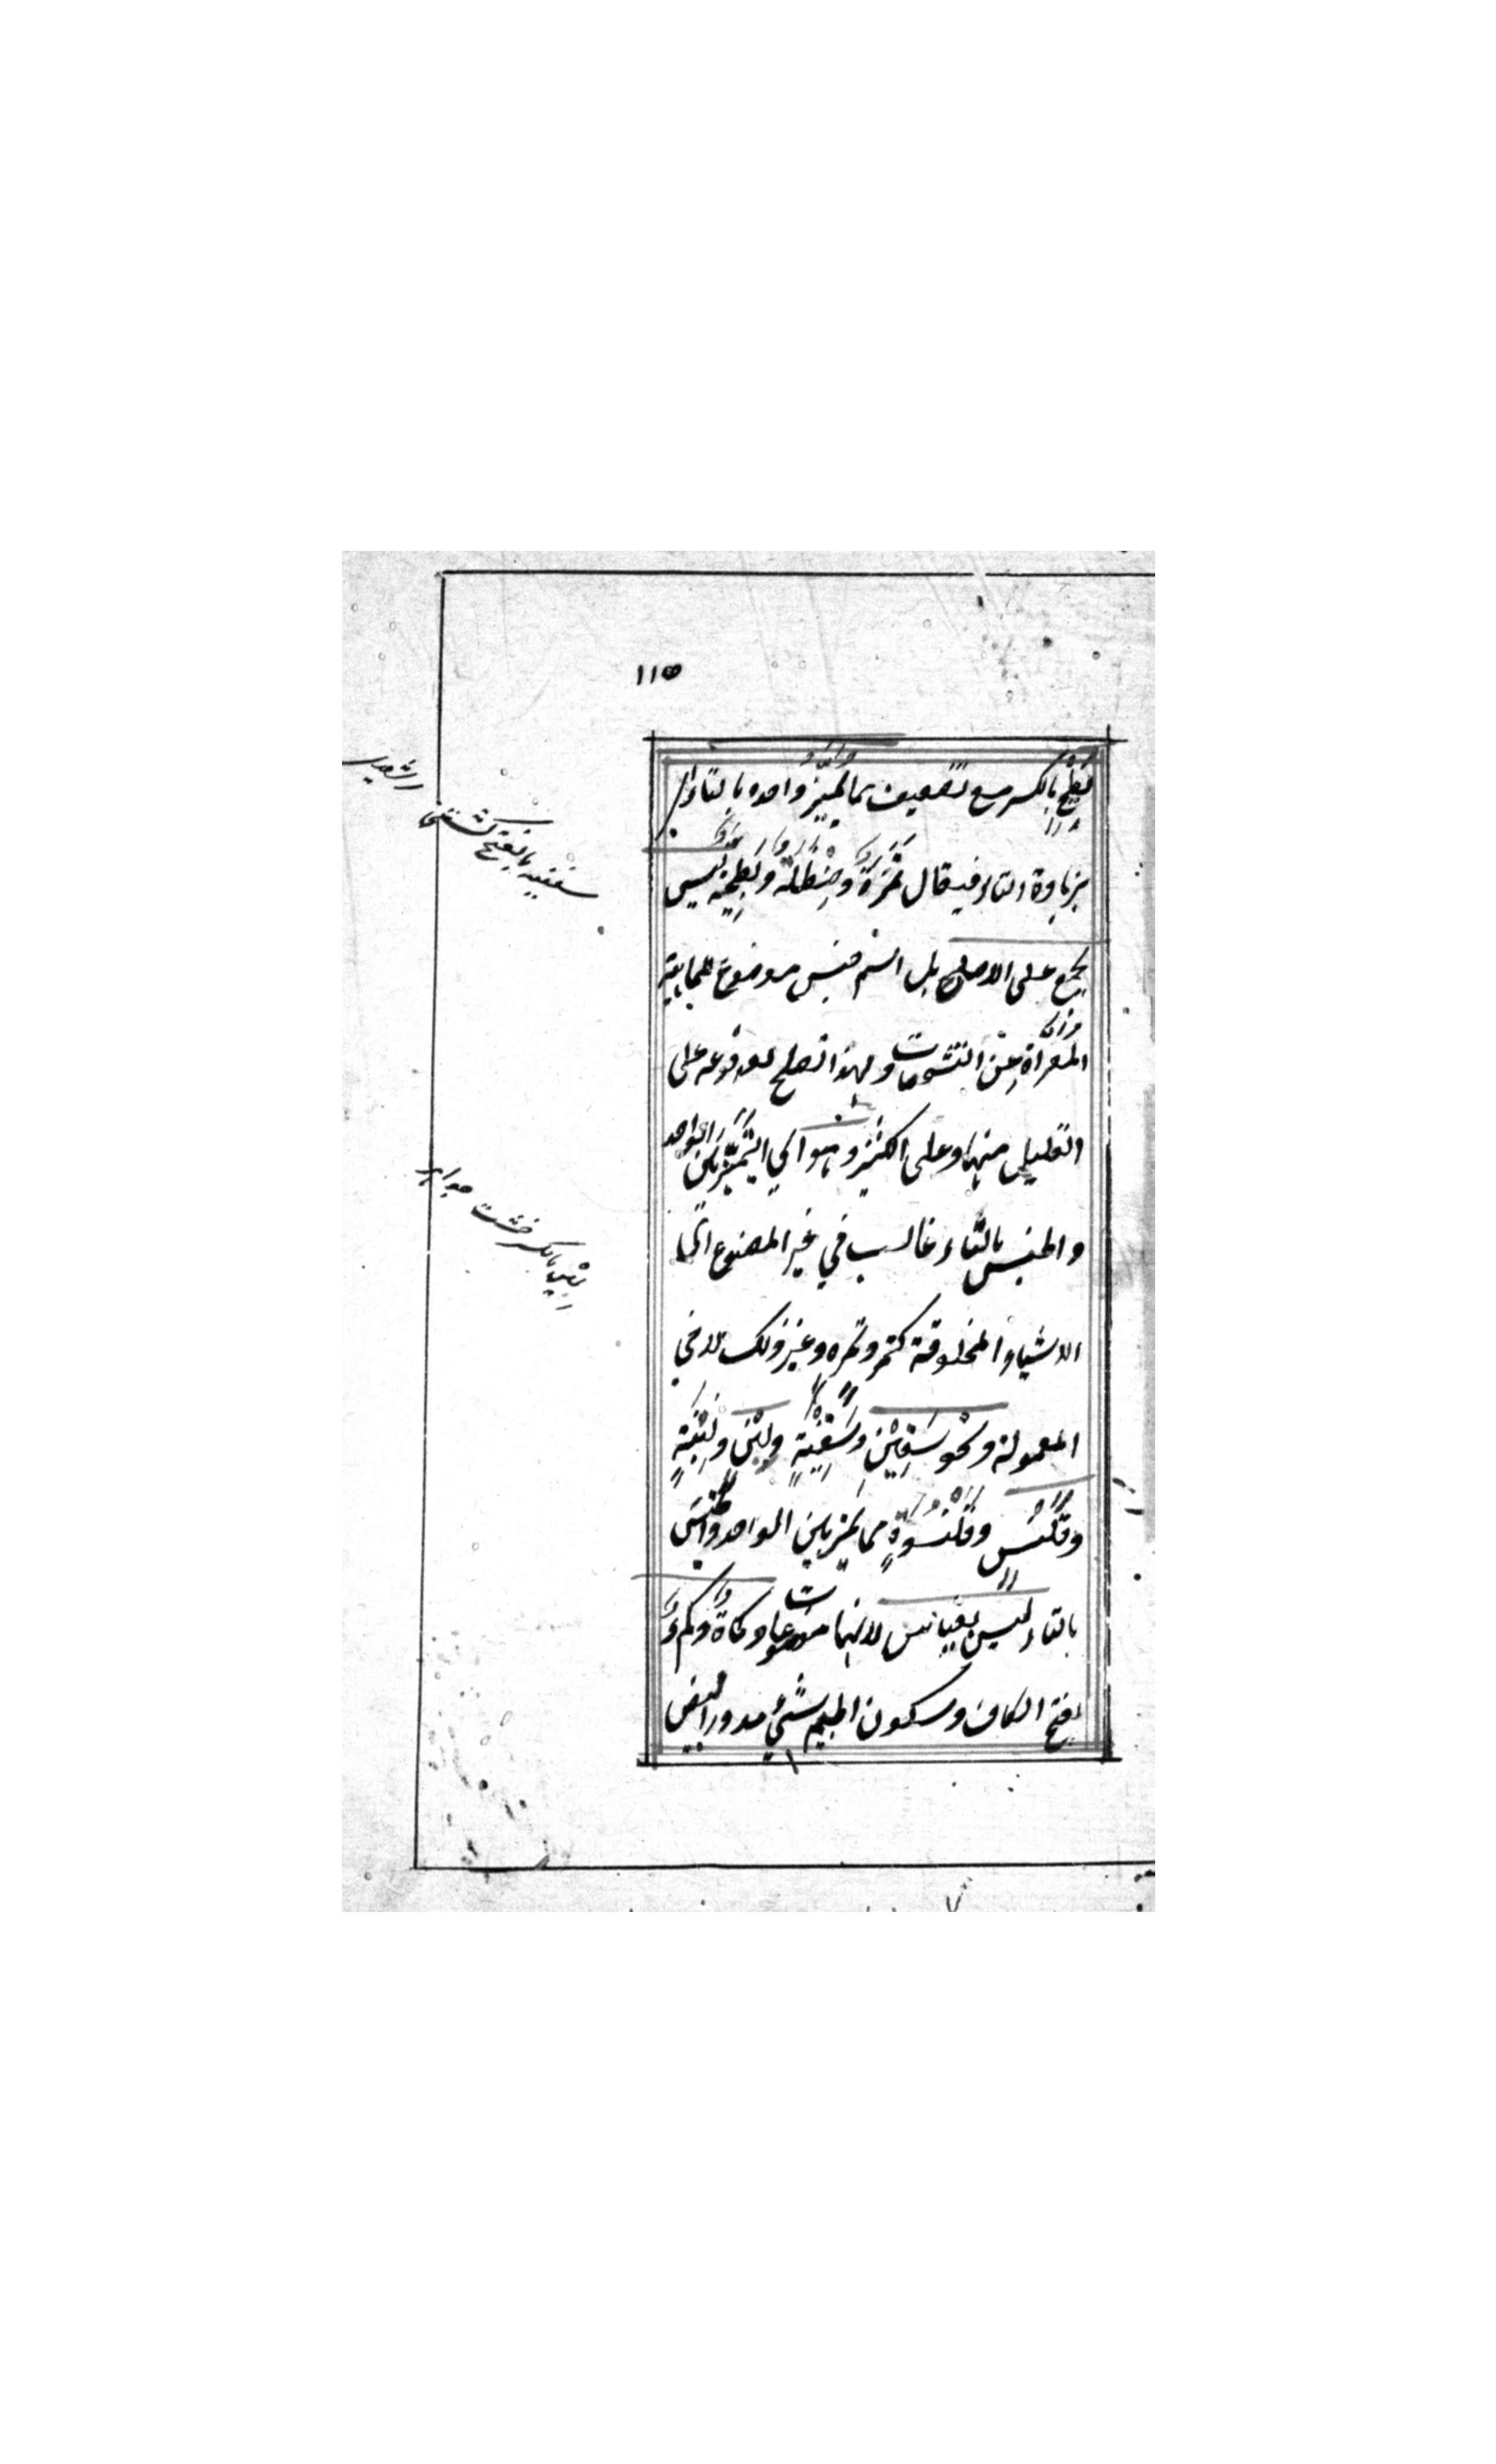 ١١٥
بطيخ بالكسر مع تضعيف مما يميز واحده بالتاء اى
بزيادة التاء فيقال تمرة وحنظلة وبطيخة ليس
بجمع على الاصح بل اسم جنس موضوع للماهية
المعراة عن التشخصات ولهذا تصلح لوقوعه على
القليل منها وعلى الكثير وهو اي التميز بين الواحد
والجنس بالتاء غالب في غير المصنوع اي
الاشياء المخلوقة كتمر وتمرة وغير ذلك لا في
المعمولة ونحو سَفِيْنٍ وسَفِيْنَةٍ ولَبِنٍ ولَبِنَةٍ
وقَلَنْسٍ وقَلَنْسُوَةٍ مما يميز بين الواحد والجنس
بالتاء ليس بقياس لانها مصنوعات وكماة وكمء
بفتح الكاف وسكون الميم شيء مدور ابيض
سفينه بالفتح كشتى
لبن بالكسر خشت